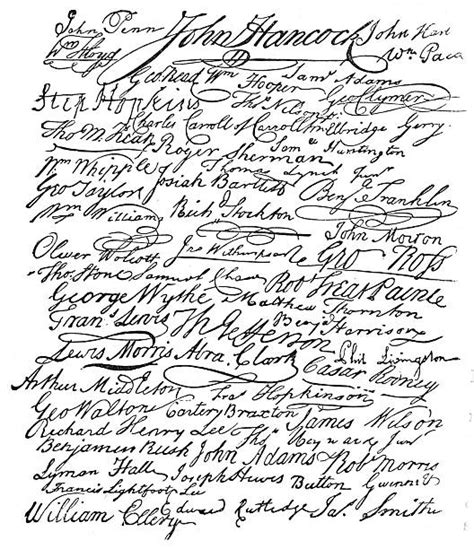 John Penn John Hancock John Hart
Wm Floyd Wm Paca
Geo Read Wm Hooper Saml Adams
Step Hopkins Thos Nelson jr Geo Clymer
Charles Carroll of Carrollton Elbridge Gerry
Thos M:Kean Roger Sherman Saml Huntington
Wm Whipple Thomas Lynch Junr
Geo Taylor Josiah Bartlett Benj Franklin
Wm Williams Richd Stockton
John Morton
Oliver Wolcott Jno Witherspoon Geo Ross
Thos Stone Samuel Chase Robt Treat Paine
George Wythe Matthew Thornton
Frans Lewis Th Jefferson Benj Harrison
Lewis Morris Abra Clark Phil Livingston
Casar Rodney
Arthur Middleton Fras Hopkinson
Geo Walton Carter Braxton James Wilson
Richard Henry Lee Thos Heyward Junr
Benjamin Rush John Adams Robt Morris
Lyman Hall Joseph Hewes Button Gwinnett
Francis Lightfoot Lee
William Ellery Edward Rutledge Jas Smith